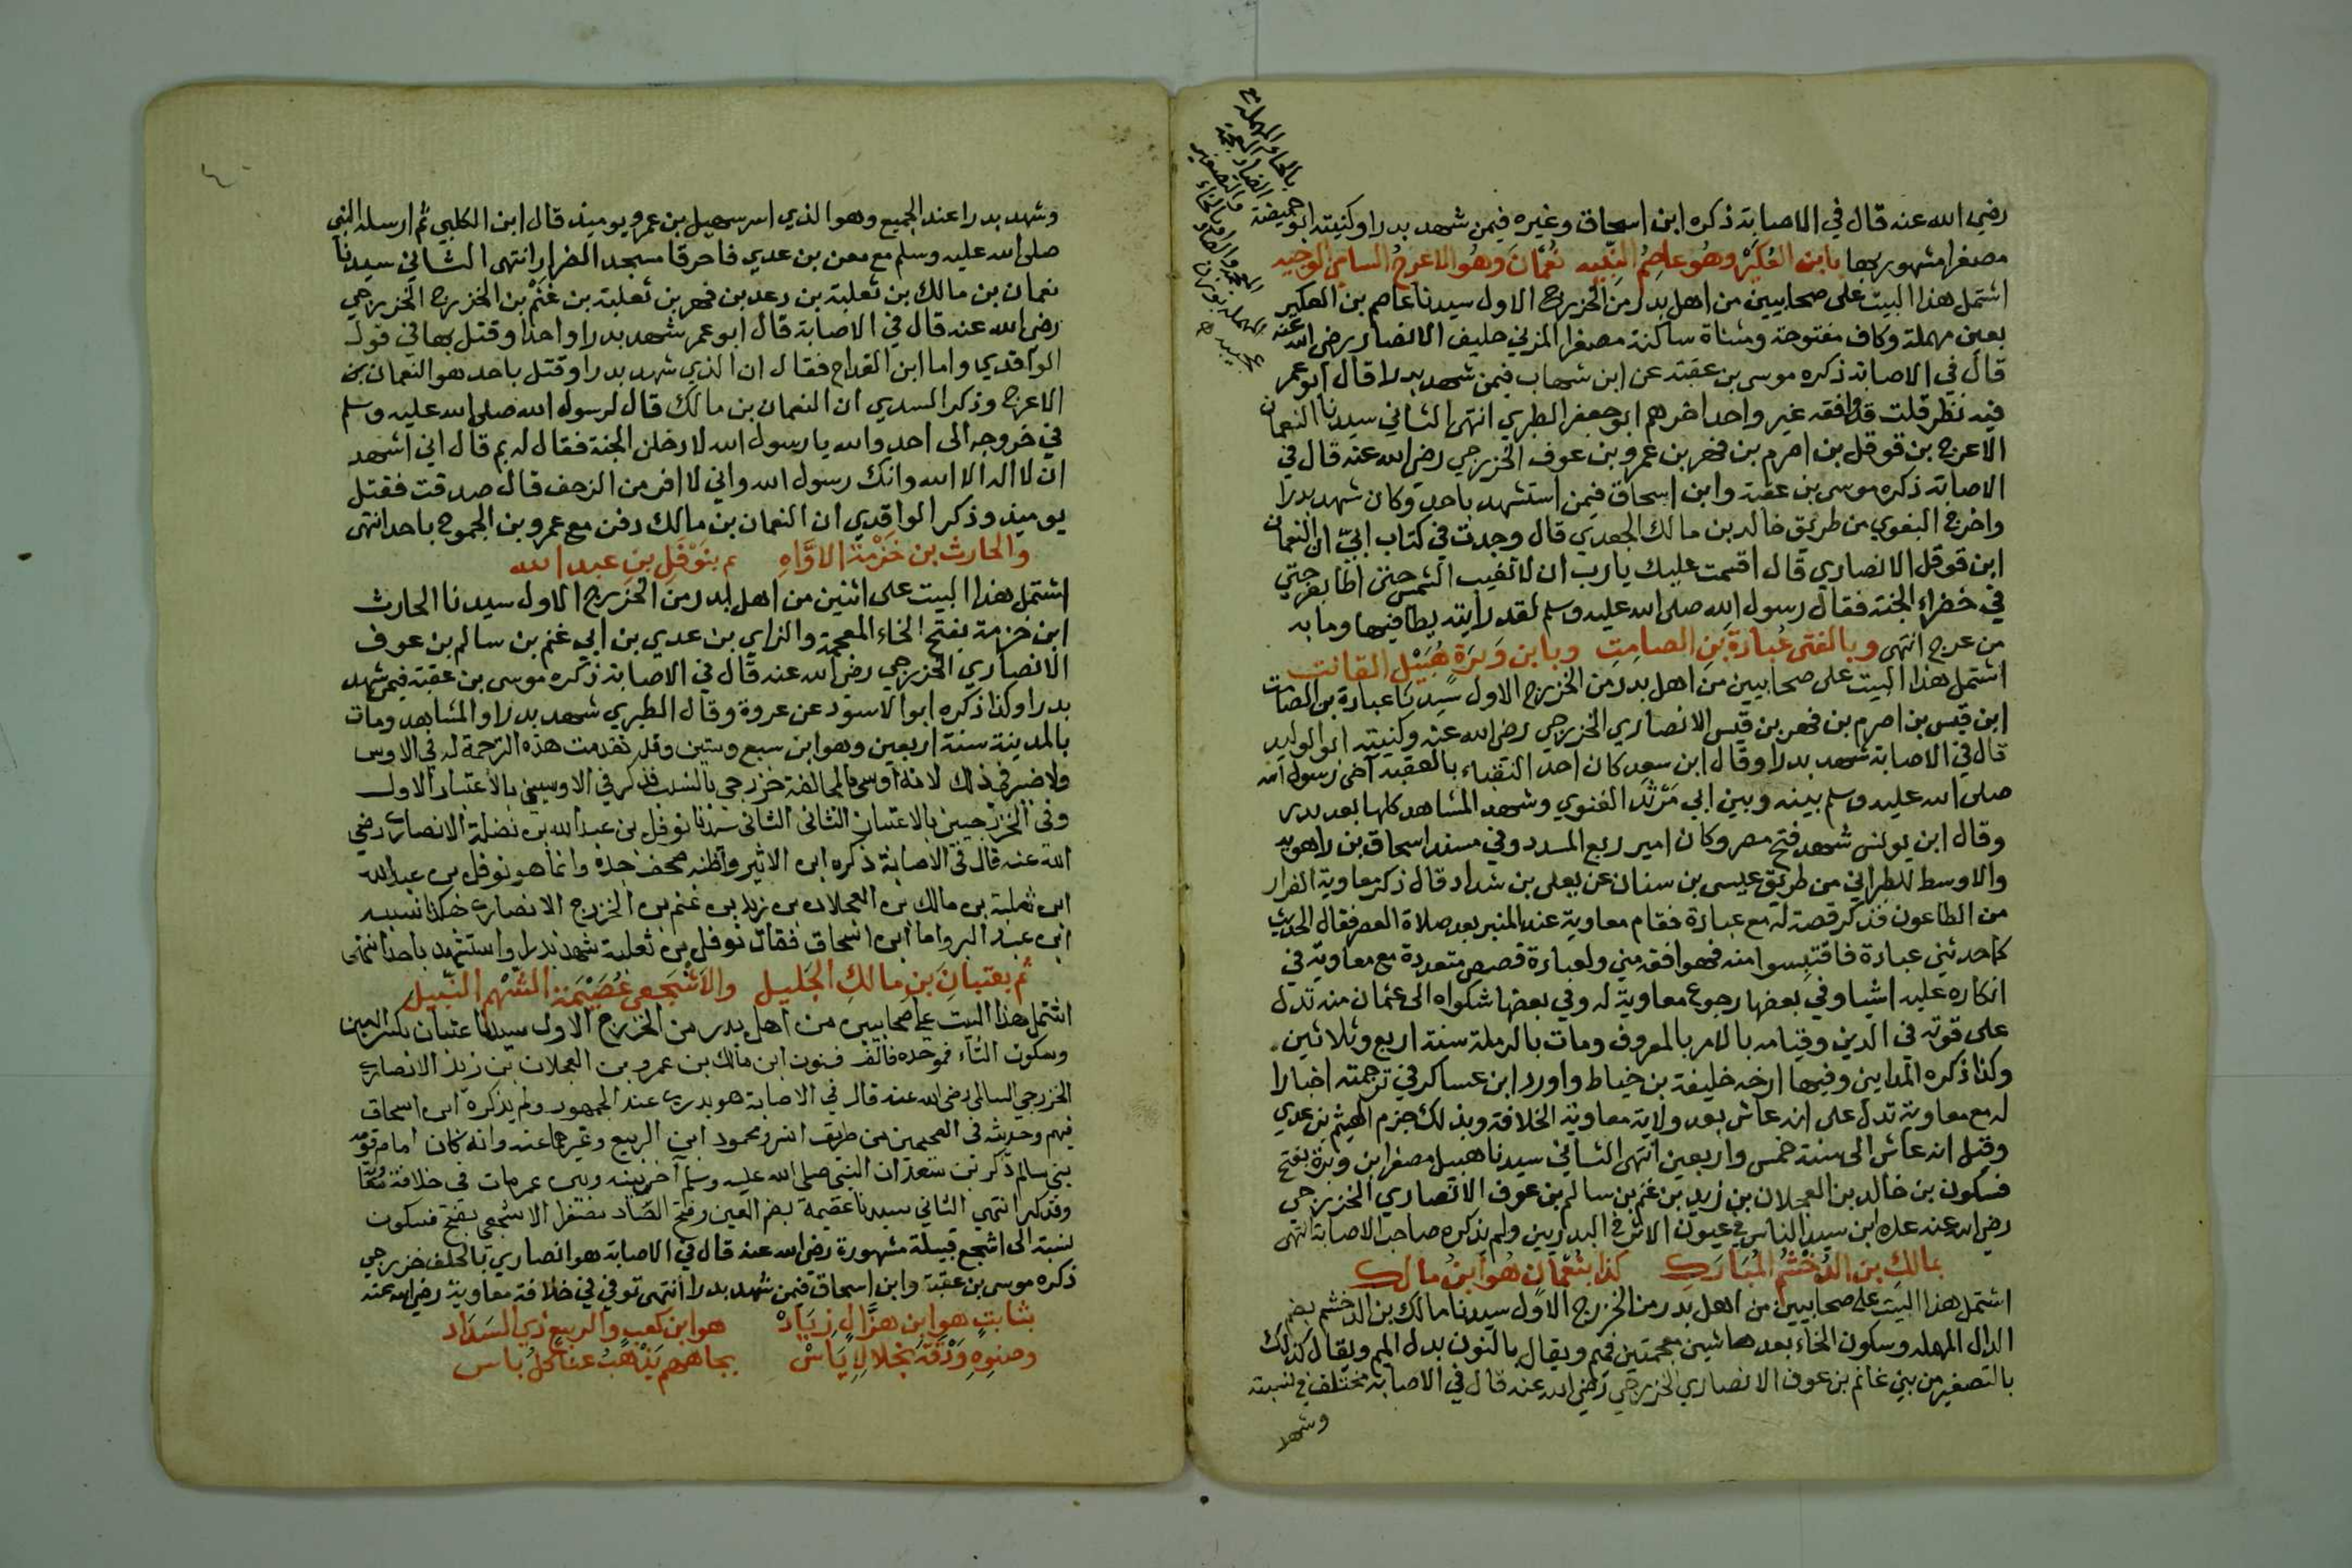 رضي الله عنه قال في الاصابة ذكره ابن اسحاق وغيره فيمن شهد بدرا وكنيته ابو حميضة
مصغرا مشهور بها بابن العُكَيْر وهُو عاصِمُ النَّبِيه نُعْمَانَ وهُو الاعرجُ السامِي الوجيه
اشتمل هذا البيت على صحابيين من اهل بدر من الخزرج الاول سيدنا عاصم بن العكير
بعين مهملة وكاف مفتوحة ومثناة ساكنة مصغرا المزني حليف الانصار رضي الله عنه
قال في الاصابة ذكره موسى بن عقبة عن ابن شهاب فيمن شهد بدرا قال ابو عمر
فيه نظر قلت قد وافقه غير واحد اخرهم ابو جعفر الطبري انتهى الثاني سيدنا النعمان
الاعرج بن قوقل بن اصرم بن فهر بن عمرو بن عوف الخزرجي رضي الله عنه قال في
الاصابة ذكره موسى بن عقبة وابن اسحاق فيمن استشهد باحد وكان شهد بدرا
واخرج البغوي من طريق خالد بن مالك الجعدي قال وجدت في كتاب ابي ان النعمان
ابن قوقل الانصاري قال اقسمت عليك يارب ان لا تغيب الشمس حتى اطأ بعرجتي
في خضراء الجنة فقال رسول الله صلى الله عليه وسلم لقد رأيته يطأ فيها وما به
من عرج انتهى وبالفتى عُبادَةَ بنِ الصامِتِ وبابن وَبَرَة هُبَيْلِ القانت
اشتمل هذا البيت على صحابيين من اهل بدر من الخزرج الاول سيدنا عبادة بن الصامت
ابن قيس بن اصرم بن فهر بن قيس الانصاري الخزرجي رضي الله عنه وكنيته ابو الوليد
قال في الاصابة شهد بدرا وقال ابن سعد كان احد النقباء بالعقبة آخى رسول الله
صلى الله عليه وسلم بينه وبين ابي مَرْثَد الغنوي وشهد المشاهد كلها بعد بدر
وقال ابن يونس شهد فتح مصر وكان امير ربع المدد وفي مسند اسحاق بن راهويه
والاوسط للطبراني من طريق عيسى بن سنان عن يعلى بن شداد قال ذكر معاوية الفرار
من الطاعون فذكر قصة له مع عبادة فقام معاوية عند المنبر بعد صلاة العصر فقال الحديث
كما حدثني عبادة فاقتبسوا منه فهو افقه مني ولعبادة قصص متعددة مع معاوية في
انكاره عليه اشيا وفي بعضها رجوع معاوية له وفي بعضها شكواه الى عثمان منه تدل
على قوته في الدين وقيامه بالامر بالمعروف ومات بالرملة سنة اربع وثلاثين
وكذا ذكره المدايني وفيها ارخه خليفة بن خياط واورد ابن عساكر في ترجمته اخبارا
له مع معاوية تدل على انه عاش بعد ولاية معاوية الخلافة وبذلك جزم الهيثم بن عدي
وقيل انه عاش الى سنة خمس واربعين انتهى الثاني سيدنا هبيل مصغرا بن وبرة بفتح
فسكون بن خالد بن العجلان بن زيد بن غنم بن سالم بن عوف الانصاري الخزرجي
رضي الله عنه عده ابن سيد الناس في عيون الاثر في البدريين ولم يذكره صاحب الاصابة انتهى
بمالكِ بن الدُّخْشُم المُبَارَكِ كذا بنُعْمَانٍ هُوَ ابنُ مالكِ
اشتمل هذا البيت على صحابيين من اهل بدر من الخزرج الاول سيدنا مالك بن الدخشم بضم
الدال المهملة وسكون الخاء بعدها شين معجمتين فميم ويقال بالنون بدل الميم ويقال كذلك
بالتصغير من بني غانم بن عوف الانصاري الخزرجي رضي الله عنه قال في الاصابة مختلف في نسبته
وشهد
بالحاء المهملة
والضاد
وشهد بدرا عند الجميع وهو الذي اسر سهيل بن عمرو يوميذ قال ابن الكلبي ثم ارسله النبي
صلى الله عليه وسلم مع معن بن عدي فاحرقا مسجد الضرار انتهى الثاني سيدنا
نعمان بن مالك بن ثعلبة بن دعد بن فهر بن ثعلبة بن غَنْم بن الخزرج الخزرجي
رضي الله عنه قال في الاصابة قال ابو عمر شهد بدرا واحدا وقتل بها في قول
الواقدي واما ابن القداح فقال ان الذي شهد بدرا وقتل باحد هو النعمان بن
الاعرج وذكر السدي ان النعمان بن مالك قال لرسول الله صلى الله عليه وسلم
في خروجه الى احد والله يا رسول الله لادخلن الجنة فقال له بم قال اني اشهد
ان لا اله الا الله وانك رسول الله واني لا افر من الزحف قال صدقت فقتل
يوميذ وذكر الواقدي ان النعمان بن مالك دفن مع عمرو بن الجموح باحد انتهى
والحارث بن خَزْمَةَ الاوَّاهِ ثم بنَوْفَلِ بنِ عبد الله
اشتمل هذا البيت على اثنين من اهل بدر من الخزرج الاول سيدنا الحارث
ابن خزمة بفتح الخاء المعجمة والزاي بن عدي بن ابي غنم بن سالم بن عوف
الانصاري الخزرجي رضي الله عنه قال في الاصابة ذكره موسى بن عقبة فيمن شهد
بدرا وكذا ذكره ابو الاسود عن عروة وقال الطبري شهد بدرا والمشاهد ومات
بالمدينة سنة اربعين وهو ابن سبع وستين وقد تقدمت هذه الترجمة له في الاوس
ولا ضير في ذلك لانه أوسي بالمحالفة خزرجي بالنسب فذكر في الاوسيين بالاعتبار الاول
وفي الخزرجيين بالاعتبار الثاني الثاني سيدنا نوفل بن عبد الله بن نضلة الانصاري رضي
الله عنه قال في الاصابة ذكره ابن الاثير واظنه صحف جده وانما هو نوفل بن عبد الله
ابن ثعلبة بن مالك بن العجلان بن زيد بن غنم بن الخزرج الانصاري هكذا نسبه
ابن عبد البر واما ابن اسحاق فقال نوفل بن ثعلبة شهد بدرا واستشهد باحد انتهى
ثم بعتبانَ بنِ مالكِ الجَليل والاَشْجَعِي عُصَيْمَة الشَّهْمِ النَّبيل
اشتمل هذا البيت على صحابيين من اهل بدر من الخزرج الاول سيدنا عتبان بكسر العين
وسكون التاء فموحده فالف فنون ابن مالك بن عمرو بن العجلان بن زيد الانصاري
الخزرجي السالمي رضي الله عنه قال في الاصابة هو بدري عند الجمهور ولم يذكره ابن اسحاق
فيهم وحديثه في الصحيحين من طريق انس ومحمود ابن الربيع وغيرهما عنه وانه كان امام قومه
بني سالم ذكر بن سعد ان النبي صلى الله عليه وسلم آخى بينه وبين عمر مات في خلافة معاوية
وقد كبر انتهى الثاني سيدنا عصيمة بضم العين وفتح الصاد مصغرا الاشجعي بفتح فسكون
نسبة الى اشجع قبيلة مشهورة رضي الله عنه قال في الاصابة هو انصاري بالحلف خزرجي
ذكره موسى بن عقبة وابن اسحاق فيمن شهد بدرا انتهى توفي في خلافة معاوية رضي الله عنه
بثابتٍ هو ابن هزَّالِ زِيَادْ هو ابن كعبٍ والربيعِ ذي السَدَاد
وصنوِهِ وَدْقَةَ نجلالِإيَاسْ بجاههم يَذْهَبُ عنا كلُ باس